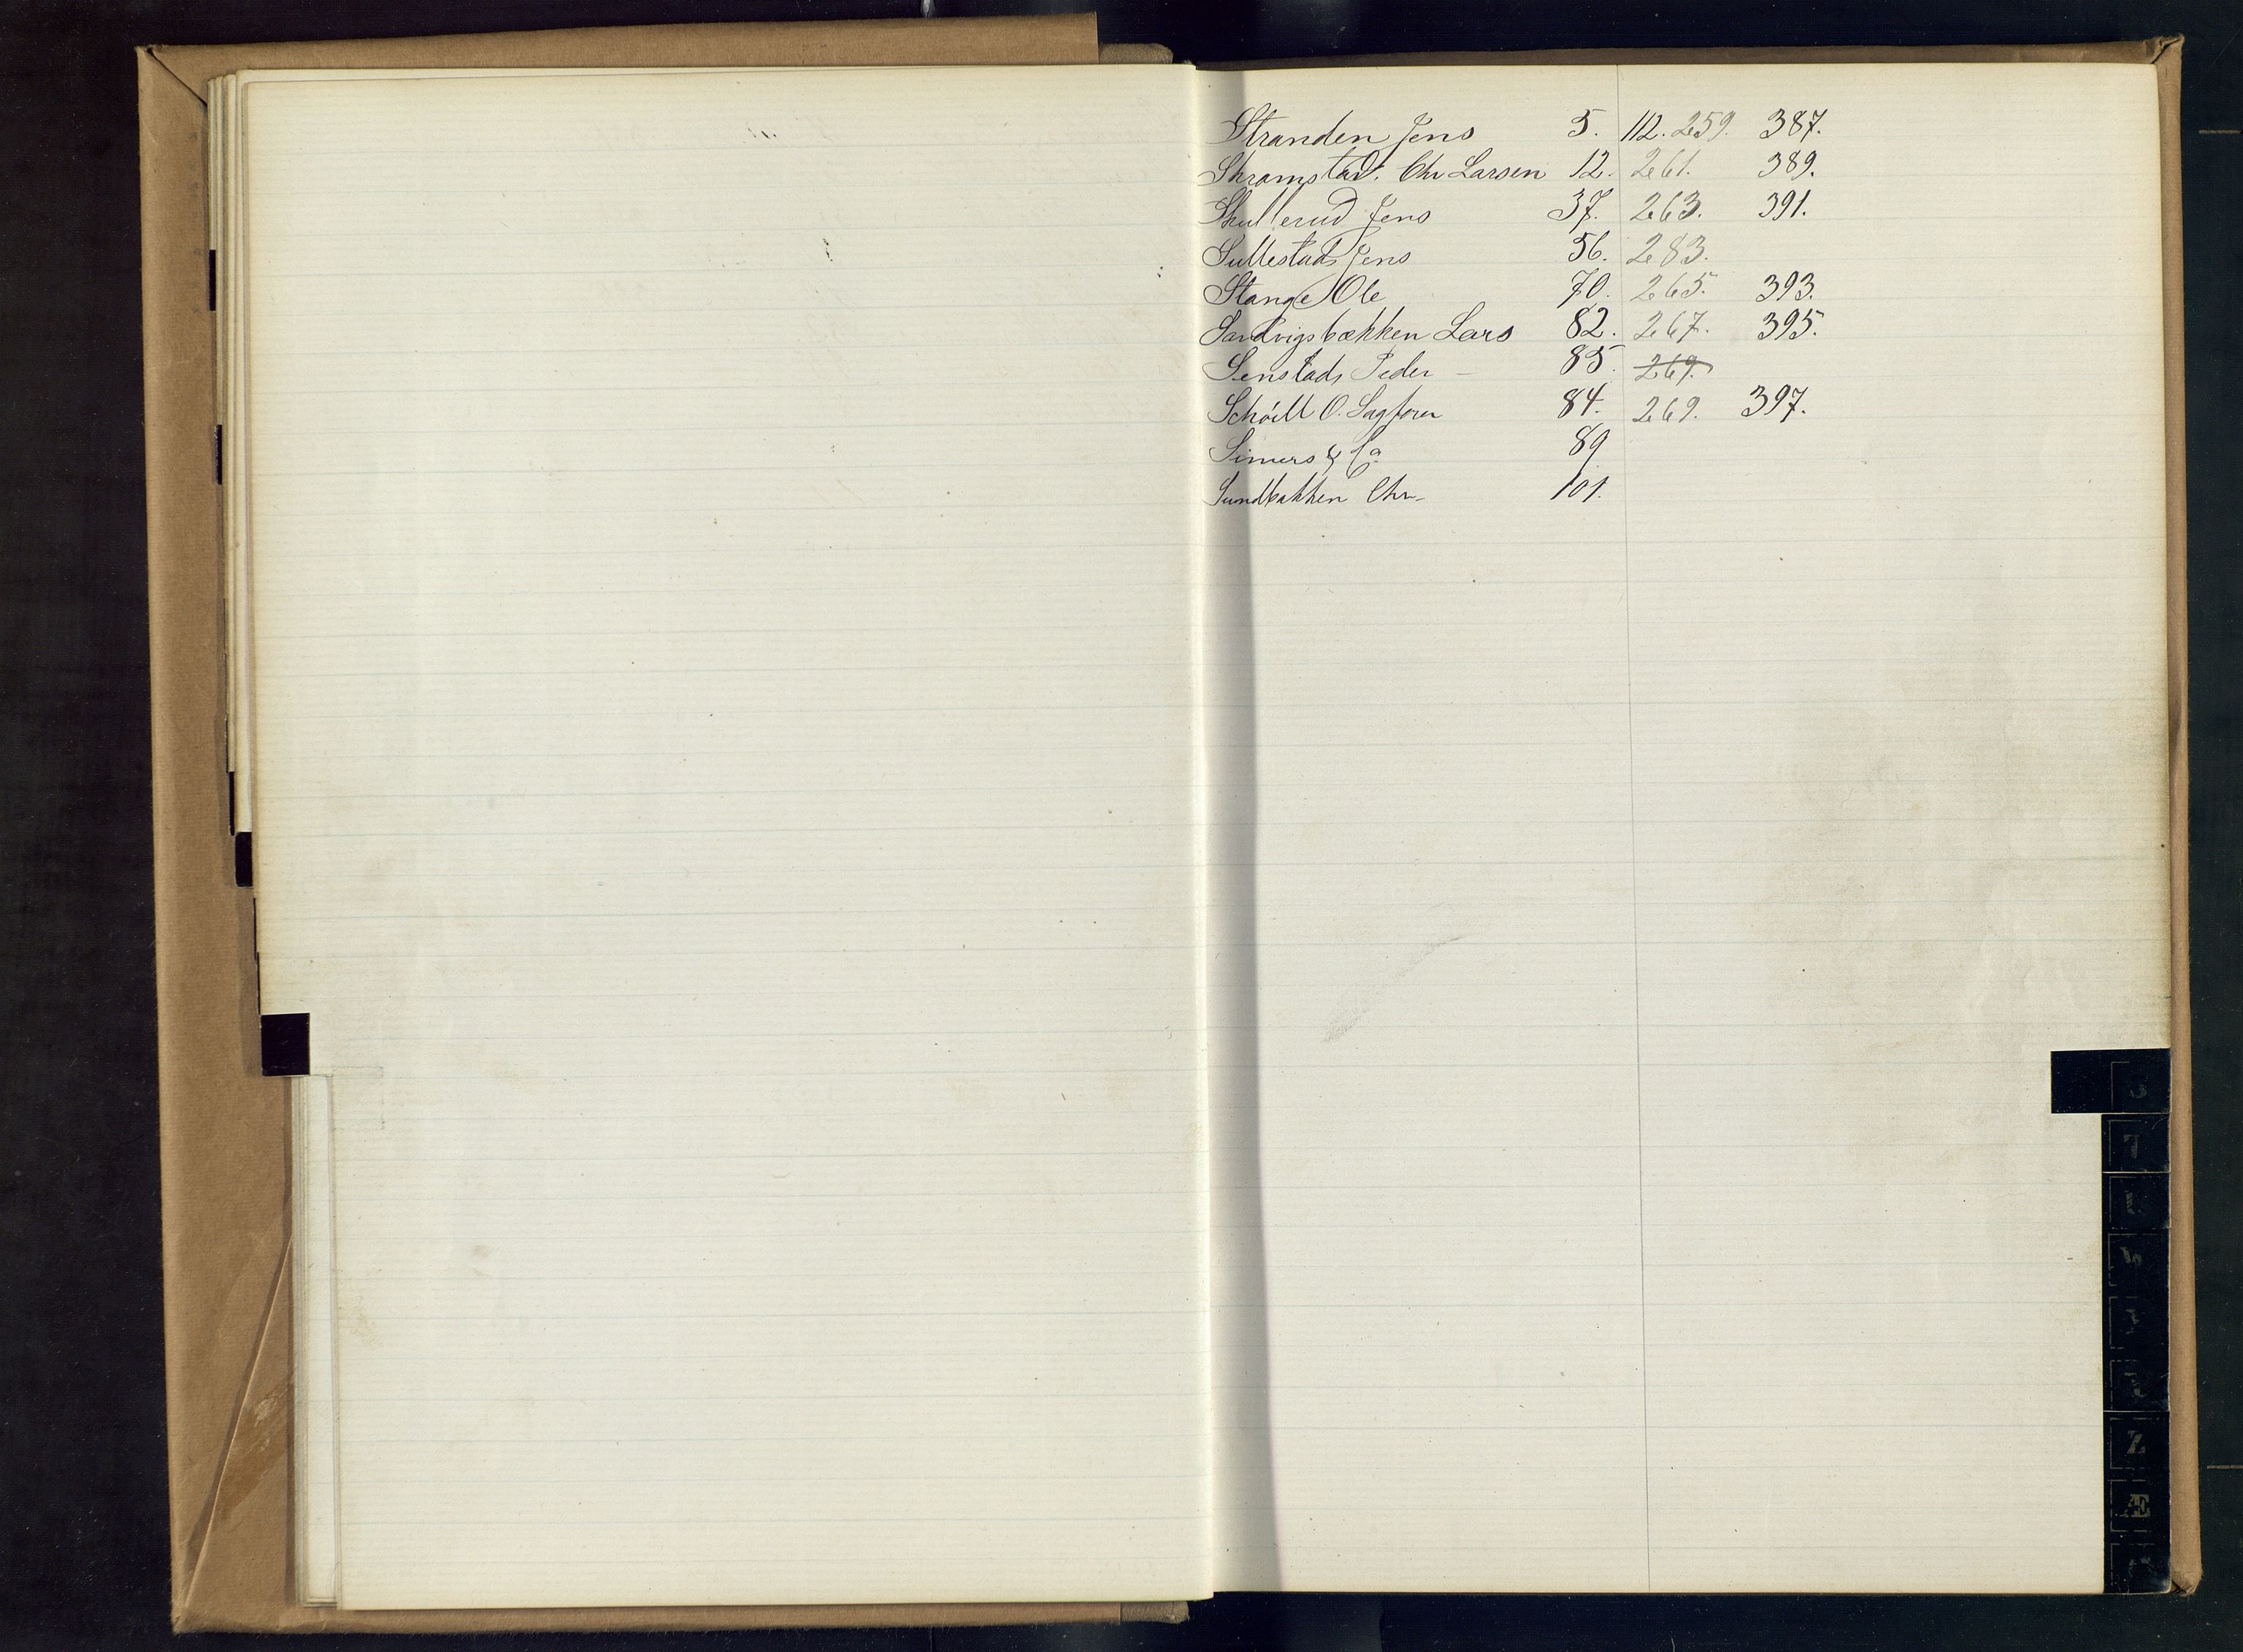 Stranden Jens 5. 112. 259. 387.
Skramstad. Chr Larsen 12. 261. 389.
Skullerud Jens 37. 263. 391.
Sullestad, Jens 56. 283.
Stange Ole 70. 265. 393.
Sandvigsbækken Lars 82. 267. 395.
Senstad, Peder - 85. 269.
Schöill O. Sagfører 84. 269. 397.
Simers & Co 89
Sundbakken Chr. 101.
S
T
Z
Æ